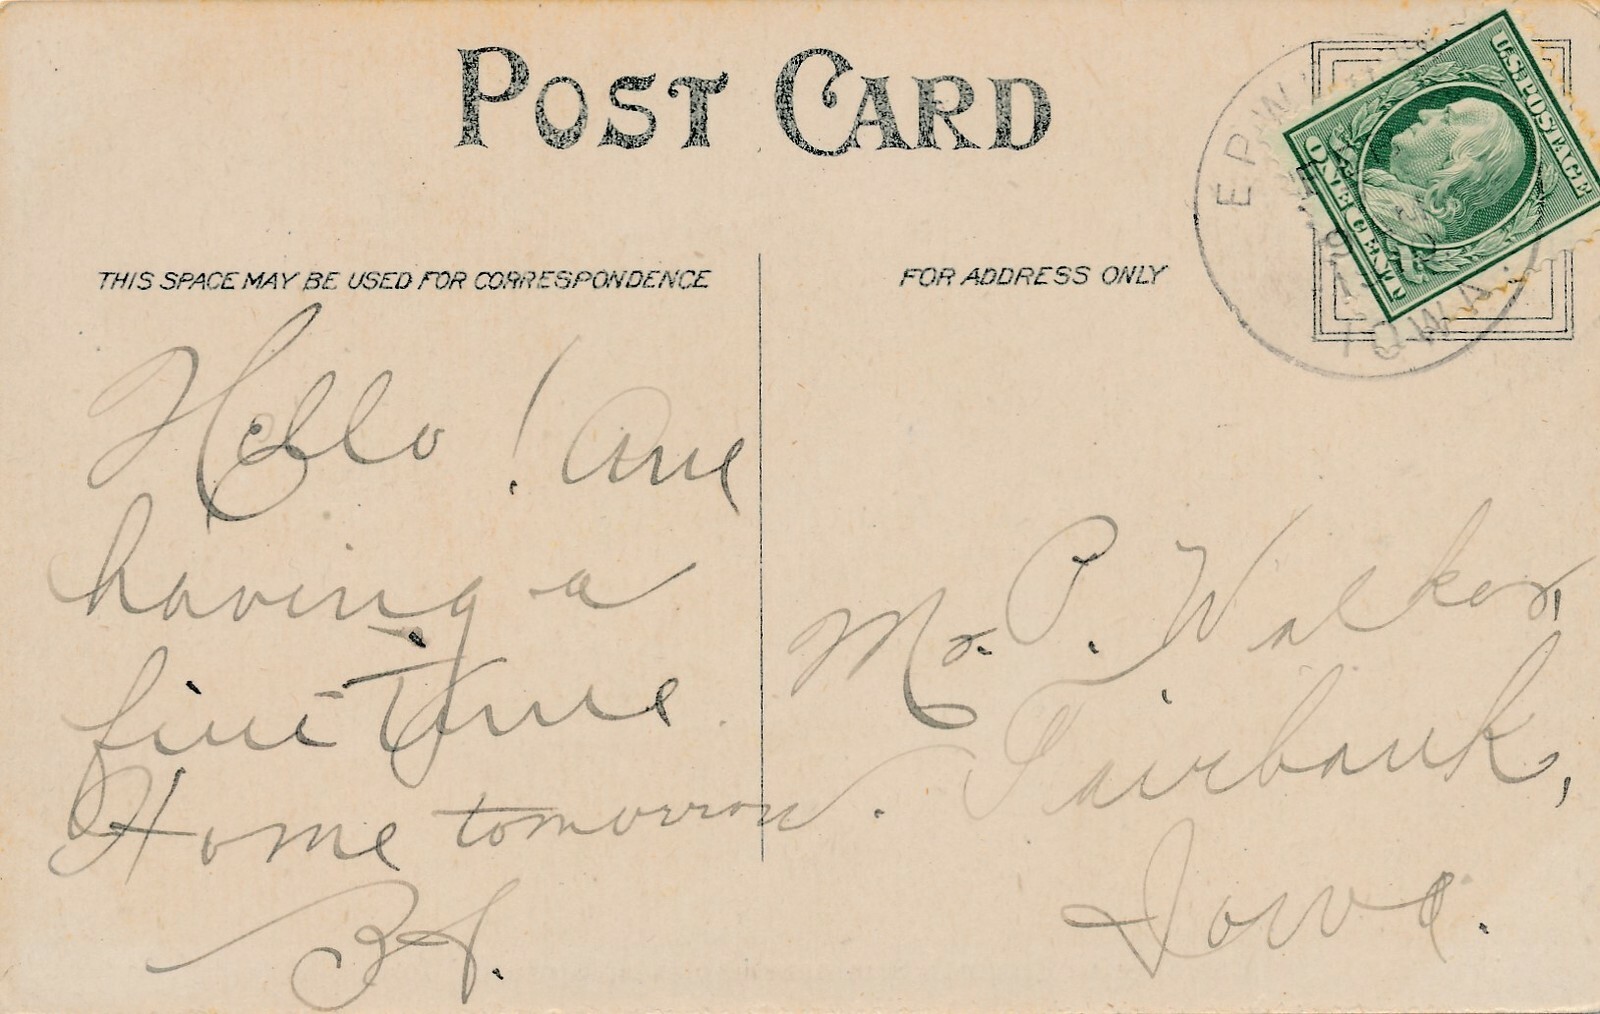 POST CARD
THIS SPACE MAY BE USED FOR CORRESPONDENCE
FOR ADDRESS ONLY
U.S. POSTAGE
ONE CENT
IOWA
Hello! Am
having a
fine time
Home tomorrow.
Mr. P. Walker,
Fairbank,
Iowa.